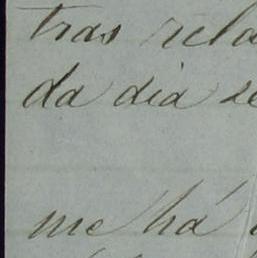 tras rela
da dia se
me há